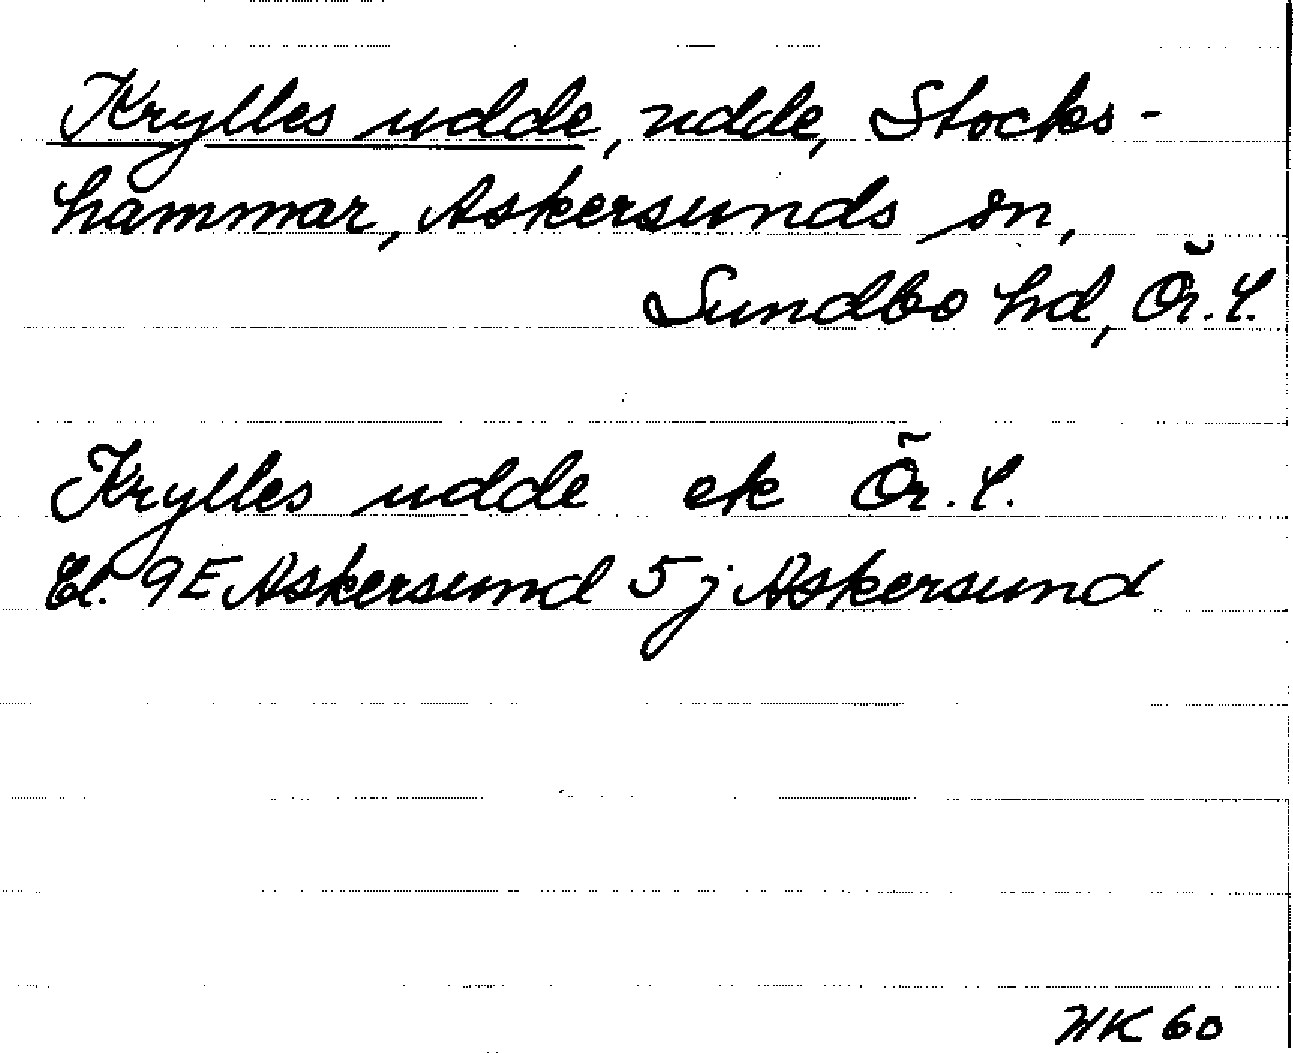 Krylles udde, udde, Stocks-
hammar, Askersunds sn,
Sundbo hd, Ör. l.
Krylles udde ek Ör. l.
Bl. 9E Askersund 5j Askersund
NK 60